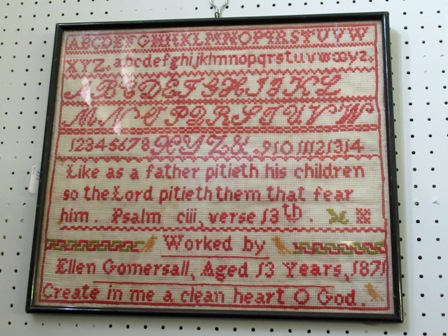 ABCDEFGHIJKLMNOPQRSTUVW
XYZ. abcdefghijklmnopqrstuvwxyz.
ABCDEFGHIJKL
MNOPQRSTUVW
12345678 XYZ&. 91011121314
Like as a father pitieth his children
so the Lord pitieth them that fear
him. Psalm ciii, verse 13th.
Worked by
Ellen Gomersall, Aged 13 Years, 1871
Create in me a clean heart O God.